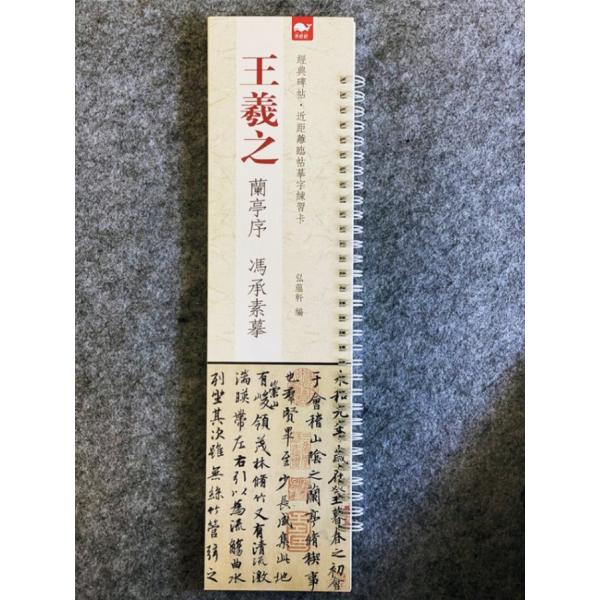 王羲之
蘭亭序 馮承素摹
經典碑帖·近距離臨帖摹字練習卡
弘蘊軒 編
永和九年歲在癸丑暮春之初會
于會稽山陰之蘭亭脩禊事
也羣賢畢至少長咸集此地
有崇山峻領茂林脩竹又有清流激
湍暎帶左右引以為流觴曲水
列坐其次雖無絲竹管弦之